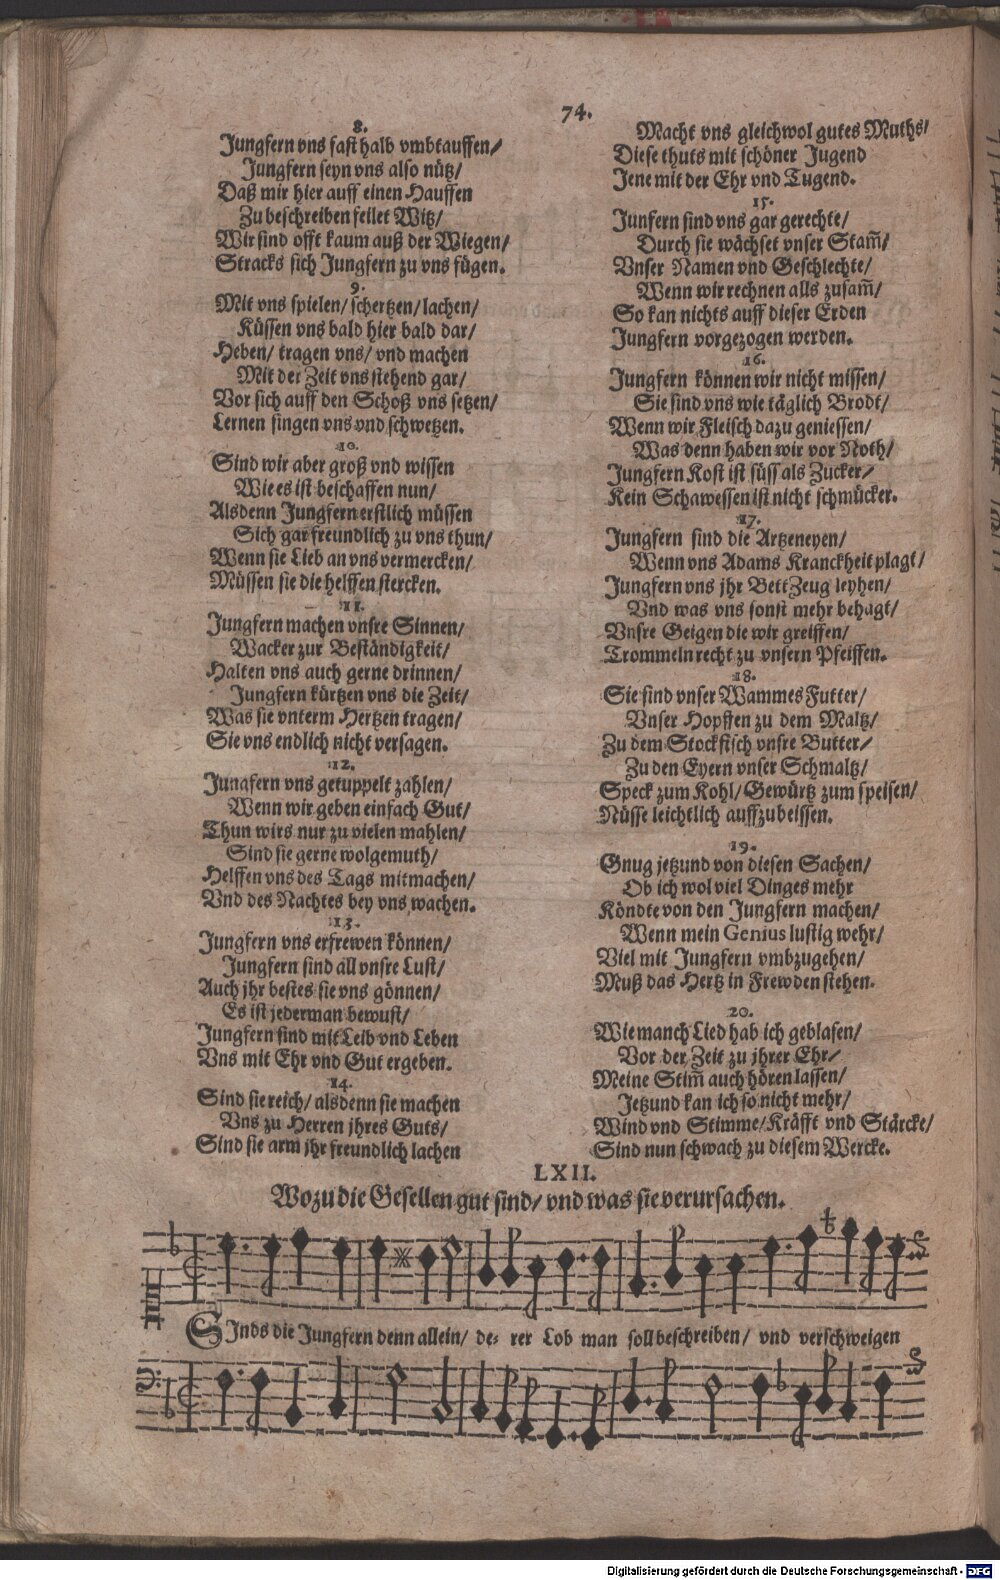 74.
8.
Jungfern vns fast halb vmbtauffen/
Jungfern seyn vns also nütz/
Daß mir hier auff einen Hauffen
Zu beschreiben feilet Witz/
Wir sind offt kaum auß der Wiegen/
Stracks sich Jungfern zu vns fügen.
9.
Mit vns spielen/ schertzen/ lachen/
Küssen vns bald hier bald dar/
Heben/ tragen vns/ vnd machen
Mit der Zeit vns stehend gar/
Vor sich auff den Schoß vns setzen/
Lernen singen vns vnd schwetzen.
10.
Sind wir aber groß vnd wissen
Wie es ist beschaffen nun/
Alsdenn Jungfern erstlich müssen
Sich gar freundlich zu vns thun/
Wenn sie Lieb an vns vermercken/
Müssen sie die helffen stercken.
11.
Jungfern machen vnsre Sinnen/
Wacker zur Beständigkeit/
Halten vns auch gerne drinnen/
Jungfern kürtzen vns die Zeit/
Was sie vnterm Hertzen tragen/
Sie vns endlich nicht versagen.
12.
Jungfern vns getuppelt zahlen/
Wenn wir geben einfach Gut/
Thun wirs nur zu vielen mahlen/
Sind sie gerne wolgemuth/
Helffen vns des Tags mitmachen/
Vnd des Nachtes bey vns wachen.
13.
Jungfern vns erfrewen können/
Jungfern sind all vnsre Lust/
Auch jhr bestes sie vns gönnen/
Es ist jederman bewust/
Jungfern sind mit Leib vnd Leben
Vns mit Ehr vnd Gut ergeben.
14.
Sind sie reich/ alsdenn sie machen
Vns zu Herren jhres Guts/
Sind sie arm jhr freundlich lachen
Macht vns gleichwol gutes Muths/
Diese thuts mit schöner Jugend
Jene mit der Ehr vnd Tugend.
15.
Junfern sind vns gar gerechte/
Durch sie wächset vnser Stam̄/
Vnser Namen vnd Geschlechte/
Wenn wir rechnen alls zusam̄/
So kan nichts auff dieser Erden
Jungfern vorgezogen werden.
16.
Jungfern können wir nicht missen/
Sie sind vns wie täglich Brodt/
Wenn wir Fleisch dazu geniessen/
Was denn haben wir vor Noth/
Jungfern Kost ist süss als Zucker/
Kein Schawessen ist nicht schmücker.
17.
Jungfern sind die Artzeneyen/
Wenn vns Adams Kranckheit plagt/
Jungfern vns jhr Bett Zeug leyhen/
Vnd was vns sonst mehr behagt/
Vnsre Geigen die wir greiffen/
Trommeln recht zu vnsern Pfeiffen.
18.
Sie sind vnser Wammes Futter/
Vnser Hopffen zu dem Maltz/
Zu dem Stockfisch vnsre Butter/
Zu den Eyern vnser Schmaltz/
Speck zum Kohl/ Gewürtz zum speisen/
Nüsse leichtlich auffzubeissen.
19.
Gnug jetzund von diesen Sachen/
Ob ich wol viel Dinges mehr
Köndte von den Jungfern machen/
Wenn mein Genius lustig wehr/
Viel mit Jungfern vmbzugehen/
Muß das Hertz in Frewden stehen.
20.
Wie manch Lied hab ich geblasen/
Vor der Zeit zu jhrer Ehr/
Meine Stim̄ auch hören lassen/
Jetzund kan ich so nicht mehr/
Wind vnd Stimme/ Kräfft vnd Stärcke/
Sind nun schwach zu diesem Wercke.
LXII.
Wozu die Gesellen gut sind/ vnd was sie verursachen.
SInds die Jungfern denn allein/ de= rer Lob man soll beschreiben/ vnd verschweigen
Digitalisierung gefördert durch die Deutsche Forschungsgemeinschaft - DFG